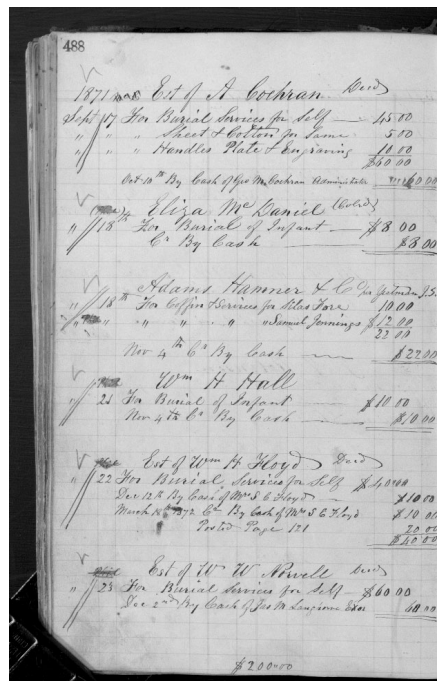 488
1871 Est of A Cochran Decd
Sept 17 For Burial Services for Self — 45 00
" " " Sheet & Cotton for Same 5 00
" " " Handles Plate & Engraving 10 00
$60 00
Oct 10th By Cash of Geo M Cochran Administrator 60 00
Eliza McDaniel (Cold)
" 18th For Burial of Infant — $8 00
Cr By Cash $8 00
Adams Hanmer & Co per J.S.
" 18th For Coffin & Services for Silas Fore 10 00
" " " " " " Samuel Jennings $12 00
22 00
Nov 4th Cr By Cash — $22 00
Wm H Hall
" 21 For Burial of Infant — $10 00
Nov 4th Cr By Cash — $10 00
Est of Wm H Floyd Decd
" 22 For Burial Services for Self $40 00
Dec 12th By Cash of Mrs S C Floyd — $10 00
March 1872 Cr By Cash of Mrs S C Floyd $10 00
Posted Page 121 20 00
$40 00
Est of W W Norvell Decd
" 23 For Burial Services for Self — $60 00
Dec 2nd By Cash of Jas M Langhorne Exor 60 00
$200 00